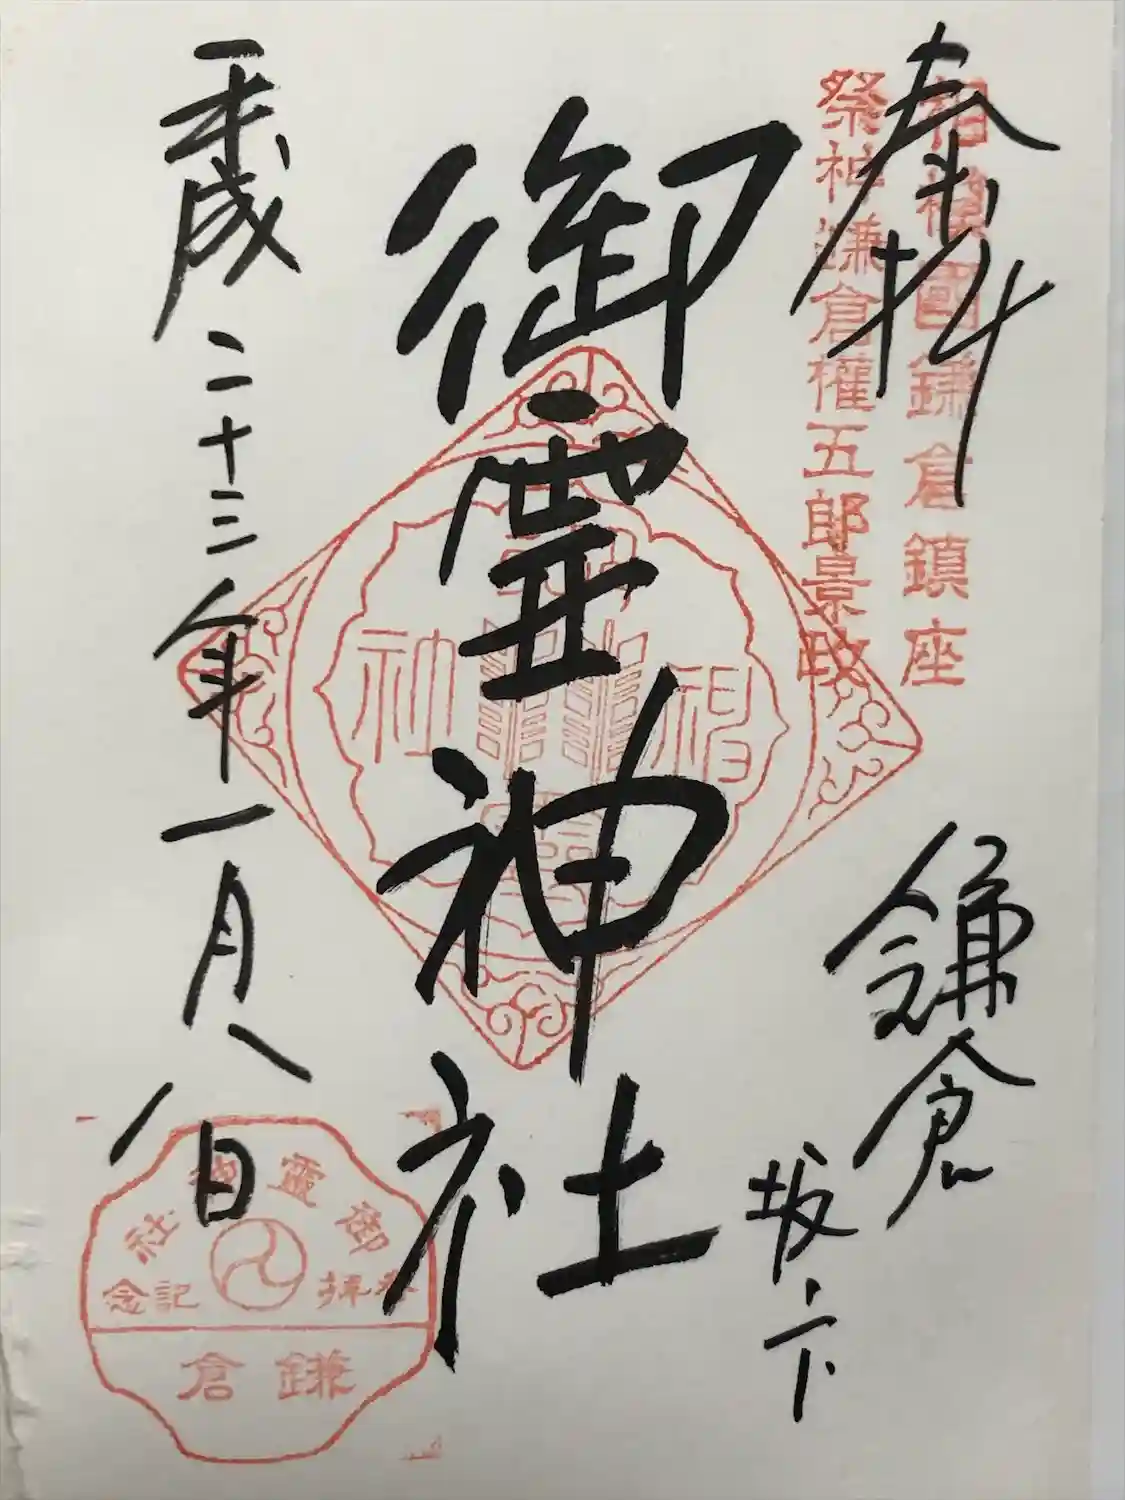 奉拝
相模國鎌倉鎮座
祭神鎌倉権五郎景政
鎌倉
坂ノ下
御霊神社
平成二十三年一月八日
御靈神社
参拝記念
鎌倉